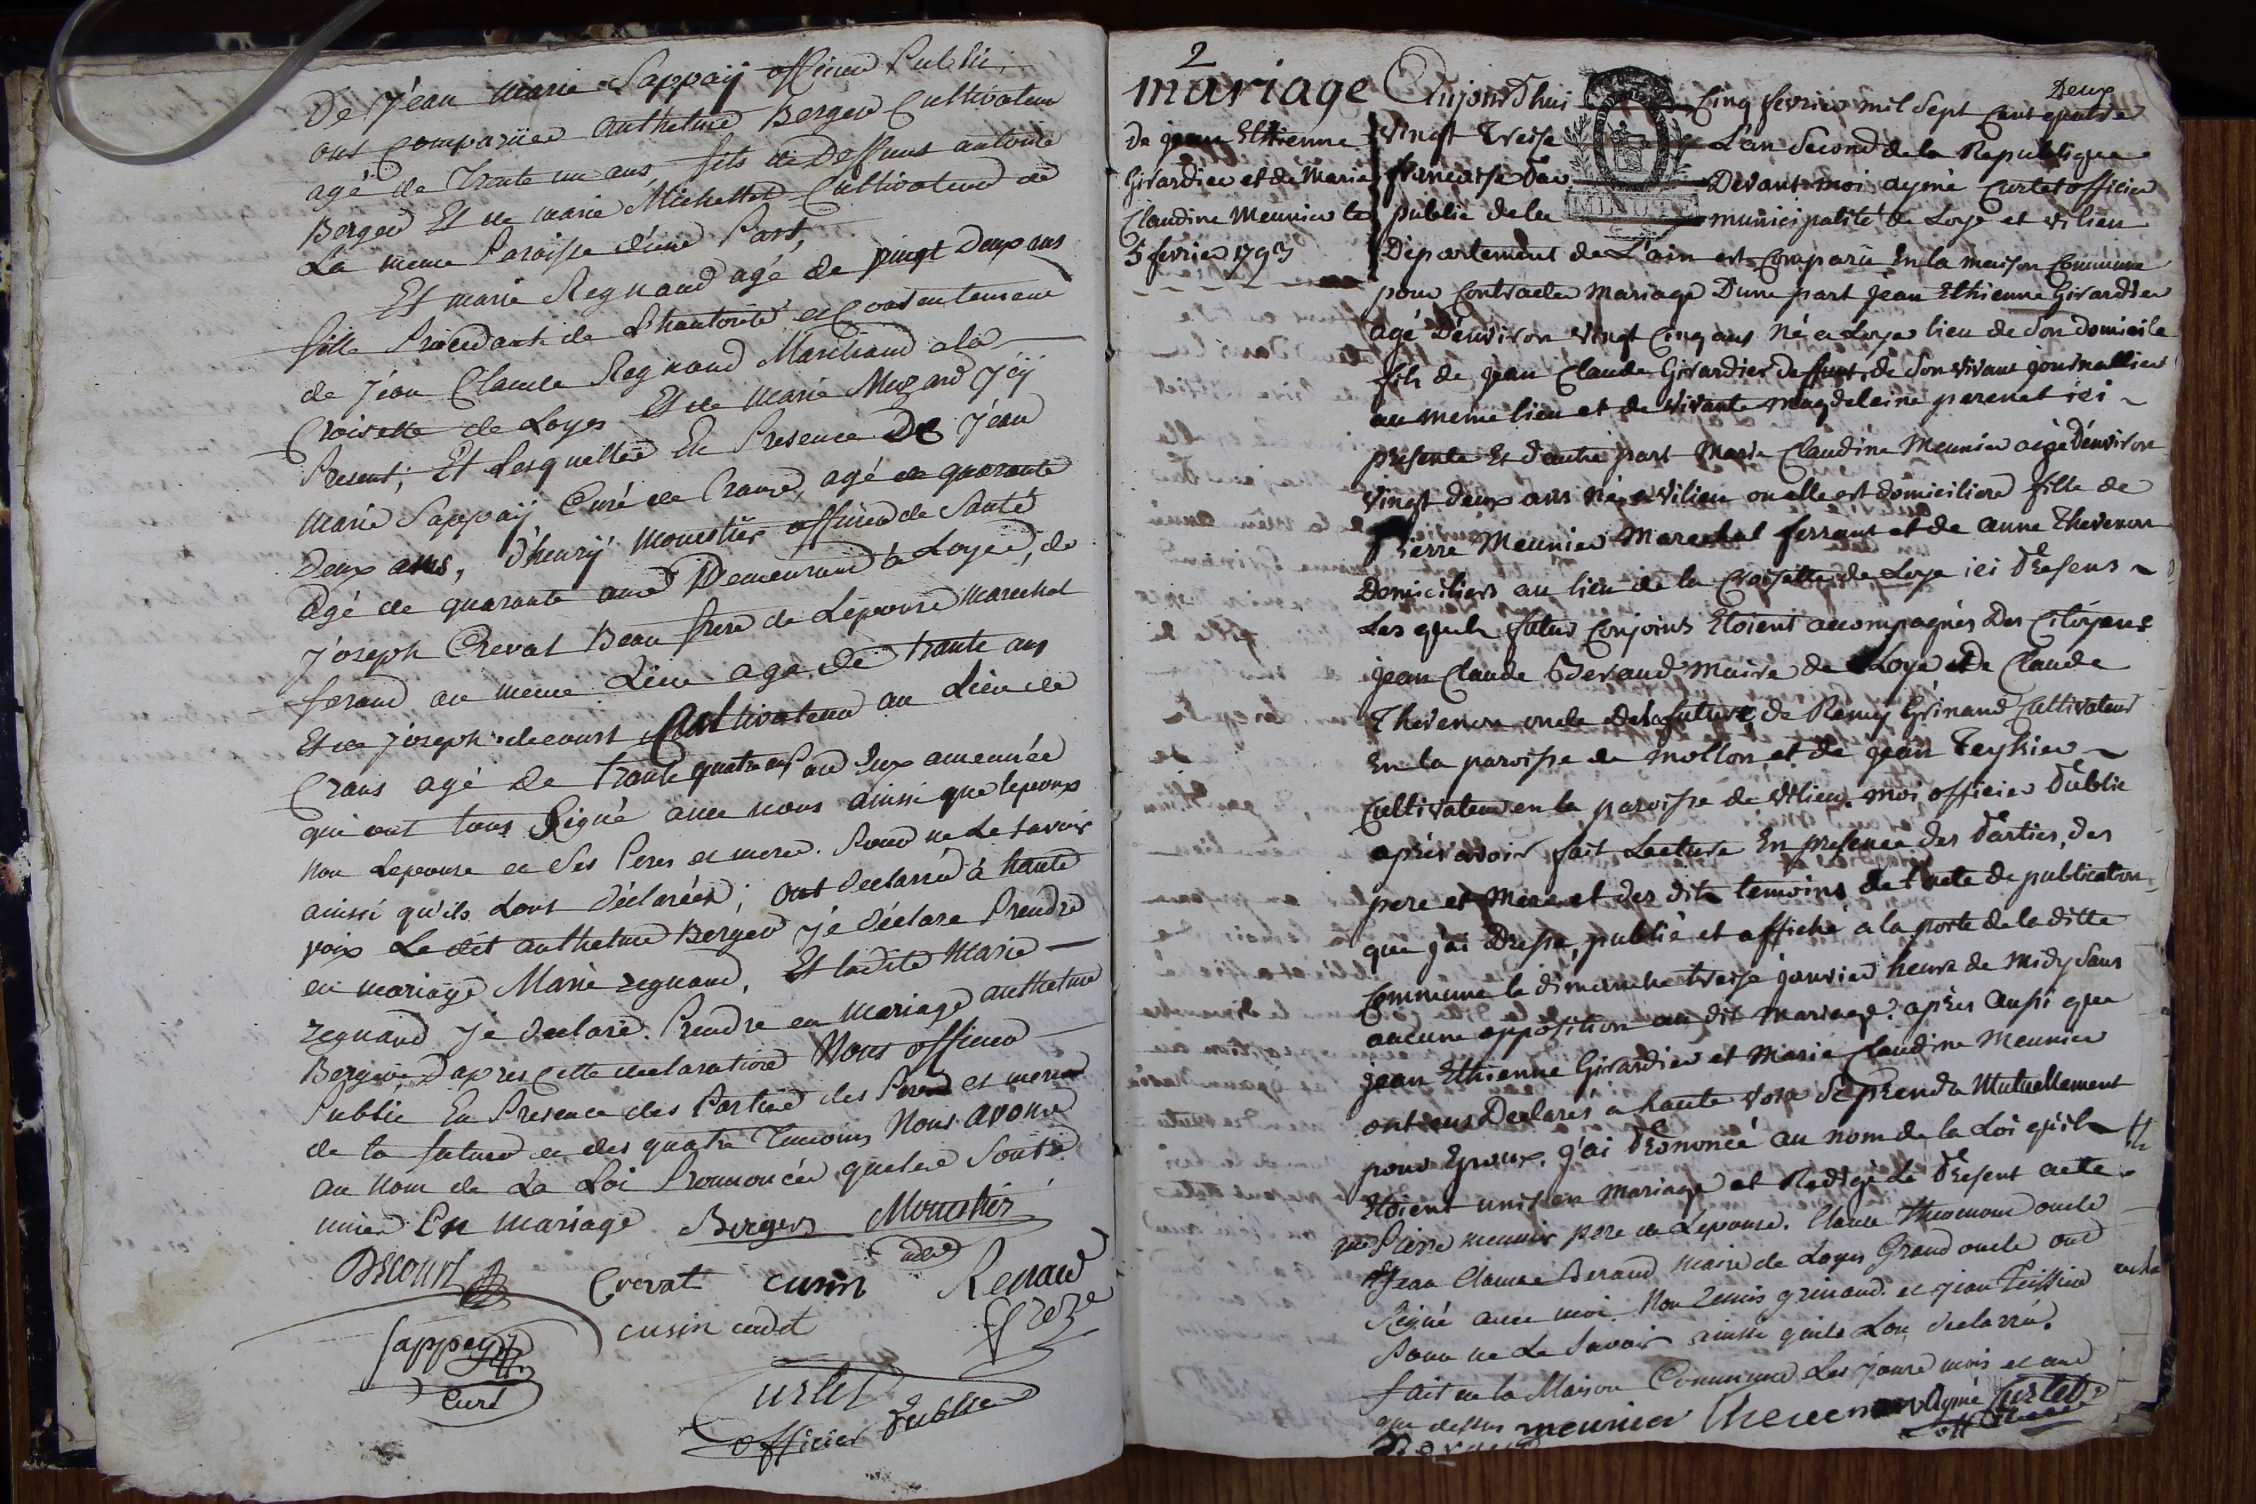 De Jéan marie Sappaÿ officier Public
ont comparuee Anthelme Berger Cultivateur
agé de Trente un ans fils de Deffunt antoine
Berger Et de marie Michellet Cultivateur de
La meme Paroisse d'une Part,
Et marie Regnaud agé de vingt Deux ans
fille Procedante de L'hautorité et Consentement
de Jéan Claude Regnaud Marchand a la
Croisette de Loyes Et de Marie Muzard Jcÿ
Present; Et Lesquelles En Presence De Jéan
Marie Sappaÿ Curé de Crans, agé de quarante
Deux ans, d'henrÿ Monestier officier de Santé
Agé de quarante ans Demeurant à Loyes, de
Joseph Crevat Beau frere de L'epouse marechal
ferand au meme Lieu age de trante ans
Et de Joseph decourt Cultivateur au Lieu de
Crans agé de trante quatre ans
qui ont tous Signé avec nous ainsi que lepoux
non Lepouse et Ses Peres et mere. Pour ne Le savoir
ainsi qu'ils Lont déclarées; ont declarré à haute
voix Le dit anthelme Berger Jé déclare Prendre
en mariage Marie regnaud, Et ladite Marie
regnaud Je declare Prendre en Mariage anthelme
Berger D'aprés cette declaration Nous officier
Public En Presence des Parties des Peres et meres
de la future et des quatre Temoins Nous avons
au nom de La Loi Prononcée quelere Sontre
unies En mariage Bergers Mouestier
Decourt Crevat cusin Renaud
Sappey cusin cadet
Curé Curlet
officier Public
2
Deux
mariage Aujourdhui Cinq fevrier mil Sept Cent quatre
De jean Ethienne vingt Treise L'an Second de la Republique
Girardier et de Marie francoise Par Devant moi aymé Curlet officier
Claudine Meunier le public de la municipalité de Loye et vilieu
5 fevrier 1793 Département de L'ain est Comparu En la maison Commune
MINUTE
pour Contracter Mariage D'une part jean Ethienne Girardier
agé D'environ vingt Cinq ans Né a Loye lieu de Son domicile
fils de jean Claude Girardier Deffunt, de Son vivant journallier
au meme lieu et de vivante Magdeleine perenet ici
presente Et d'autre part Marie Claudine Meunier agé d'environ
vingt deux ans Né a Vilieu ou elle est domiciliere fille de
Pierre Meunier Marechal ferrant et de anne Thevenon
Domiciliers au lieu de la Croisette de Loye ici Présens
Les quels futurs Conjoins Etoient accompagnés Des Citoyens
jean Claude Beraud Maire de Loye et de Claude
Thevenon oncle de la future de Remy Grinand Cultivateur
En la paroisse de mollon et de jean Teyssier
Cultivateur en la paroisse de Vilieu. moi officier Public
aprés avoir fait Lecture En presence des Parties, des
pere et Mere et des dits temoins de l'acte de publication
que j'ai Dressé, publié et affiché a la porte de la ditte
Commune le dimanche treise janvier heure de Midy Sans
aucune opposition au dit Mariage. aprés aussi que
jean Ethienne Girardier et Marie Claudine Meunier
ont eus Declarés a haute voix Se prendre Mutuellement
pour Epoux. j'ai Prononcé au nom de la Loi qu'il
Etoient unis en Mariage et Redigé Le Présent acte
que Pierre meunier pere de Lepouse. Claude Thevenon oncle
et Jean Claude Beraud maire de Loyes Grand oncle ont
Signé avec moi Non Remis grinand. et Jean Teissier
Pour ne Le Savoir ainsi quils Lon declarré.
fait en la Maison Commune Les Jours mois et ans
que dessus meunier Thevenon Aymé Curlet